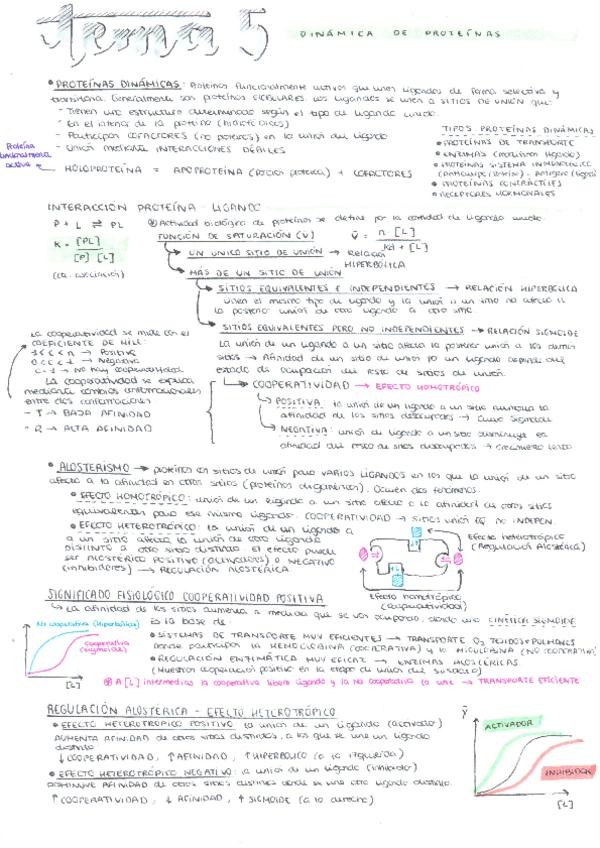 Tema 5
DINÁMICA DE PROTEÍNAS
• PROTEÍNAS DINÁMICAS: Proteínas funcionalmente activas que unen ligandos de forma selectiva y
transitoria. Generalmente son proteínas GLOBULARES. Los ligandos se unen a SITIOS DE UNIÓN que:
- Tienen una estructura determinada según el tipo de ligando unido.
- En el interior de la proteína (hidrofóbicos)
- Participan COFACTORES (no proteicos) en la unión del ligando
- Unión mediante INTERACCIONES DÉBILES
Proteína funcionalmente activa
HOLOPROTEÍNA = APOPROTEÍNA (porción proteica) + COFACTORES
TIPOS PROTEÍNAS DINÁMICAS
• PROTEÍNAS DE TRANSPORTE
• ENZIMAS (modifican ligando)
• PROTEÍNAS SISTEMA INMUNOLÓGICO
- Antígeno (ligando)
• PROTEÍNAS CONTRÁCTILES
• RECEPTORES HORMONALES
INTERACCIÓN PROTEÍNA - LIGANDO
P + L ⇌ PL
K = [PL] / [P] [L]
(cte. asociación)
Actividad biológica de proteínas se define por la cantidad de ligando unido
FUNCIÓN DE SATURACIÓN (Ῡ) Ῡ = n · [L] / Kd + [L]
UN ÚNICO SITIO DE UNIÓN → Relación HIPERBÓLICA
MÁS DE UN SITIO DE UNIÓN
SITIOS EQUIVALENTES E INDEPENDIENTES → RELACIÓN HIPERBÓLICA
unen el mismo tipo de ligando y la unión a un sitio no afecta a
la posterior unión de otro ligando a otro sitio.
SITIOS EQUIVALENTES PERO NO INDEPENDIENTES → RELACIÓN SIGMOIDE
La unión de un ligando a un sitio afecta la posterior unión a los demás
sitios → Afinidad de un sitio de unión por un ligando depende del
estado de ocupación del resto de sitios de unión.
La cooperatividad se mide con el
COEFICIENTE DE HILL:
1 < c < n → Positiva
0 < c < 1 → Negativa
c = 1 → No hay cooperatividad
La cooperatividad se explica
mediante cambios conformacionales
entre dos conformaciones
- T → BAJA AFINIDAD
- R → ALTA AFINIDAD
COOPERATIVIDAD → EFECTO HOMOTRÓPICO
POSITIVA: la unión de un ligando a un sitio aumenta la
afinidad de los sitios desocupados → Curva sigmoide
NEGATIVA: unión de ligando a un sitio disminuye la
afinidad del resto de sitios desocupados → crecimiento lento
• ALOSTERISMO → proteínas con sitios de unión para VARIOS LIGANDOS en los que la unión de un sitio
afecta a la afinidad en otros sitios (proteínas oligoméricas). Ocurren dos fenómenos.
• EFECTO HOMOTRÓPICO: unión de un ligando a un sitio afecta a la afinidad de otros sitios
equivalentes para ese mismo ligando. COOPERATIVIDAD → sitios unión no INDEPEN.
• EFECTO HETEROTRÓPICO: la unión de un ligando a
a un sitio afecta la unión de otro ligando
DISTINTO a otro sitio distinto. El efecto puede
ser ALOSTÉRICO POSITIVO (activadores) o NEGATIVO
(inhibidores) → REGULACIÓN ALOSTÉRICA
Efecto heterotrópico
(Regulación Alostérica)
Efecto homotrópico
(cooperatividad)
SIGNIFICADO FISIOLÓGICO COOPERATIVIDAD POSITIVA
La afinidad de los sitios aumenta a medida que se van ocupando, dando una CINÉTICA SIGMOIDE
Es la base de:
• SISTEMAS DE TRANSPORTE MUY EFICIENTES → TRANSPORTE O₂ TEJIDOS-PULMONES
Donde participan la HEMOGLOBINA (COOPERATIVA) y la MIOGLOBINA (NO COOPERATIVA)
• REGULACIÓN ENZIMÁTICA MUY EFICAZ → ENZIMAS ALOSTÉRICAS
(Muestran cooperación positiva en la etapa de unión del sustrato)
A [L] intermedias la cooperativa libera ligando y la No cooperativa la une → TRANSPORTE EFICIENTE
No cooperativa (Hiperbólica)
Cooperativa (sigmoide)
[L]
REGULACIÓN ALOSTÉRICA - EFECTO HETEROTRÓPICO
• EFECTO HETEROTRÓPICO POSITIVO: la unión de un ligando (activador)
AUMENTA AFINIDAD de otros sitios distintos, a los que se une un ligando
distinto
↓ COOPERATIVIDAD, ↑ AFINIDAD, ↑ HIPERBÓLICO (a la izquierda)
• EFECTO HETEROTRÓPICO NEGATIVO: la unión de un ligando (inhibidor)
DISMINUYE AFINIDAD de otros sitios distintos donde se une otro ligando distinto.
↑ COOPERATIVIDAD, ↓ AFINIDAD, ↑ SIGMOIDE (a la derecha)
Ῡ
ACTIVADOR
INHIBIDOR
[L]